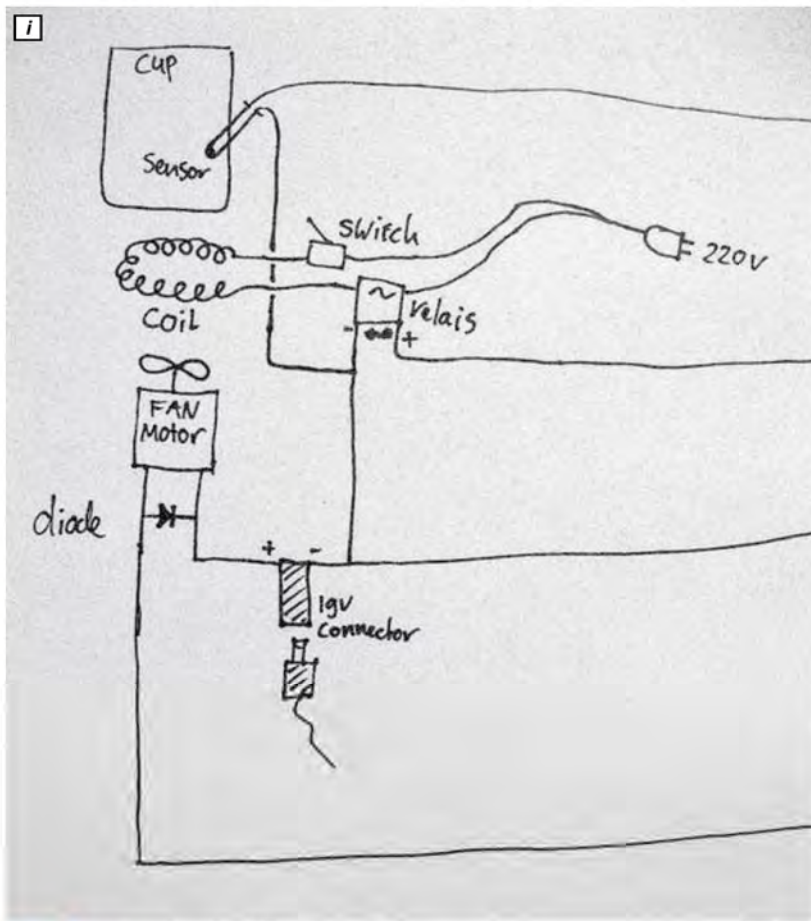 i
Cup
Sensor
Switch
220V
relais
~
- +
Coil
FAN
Motor
diode
+ -
19V
Connector